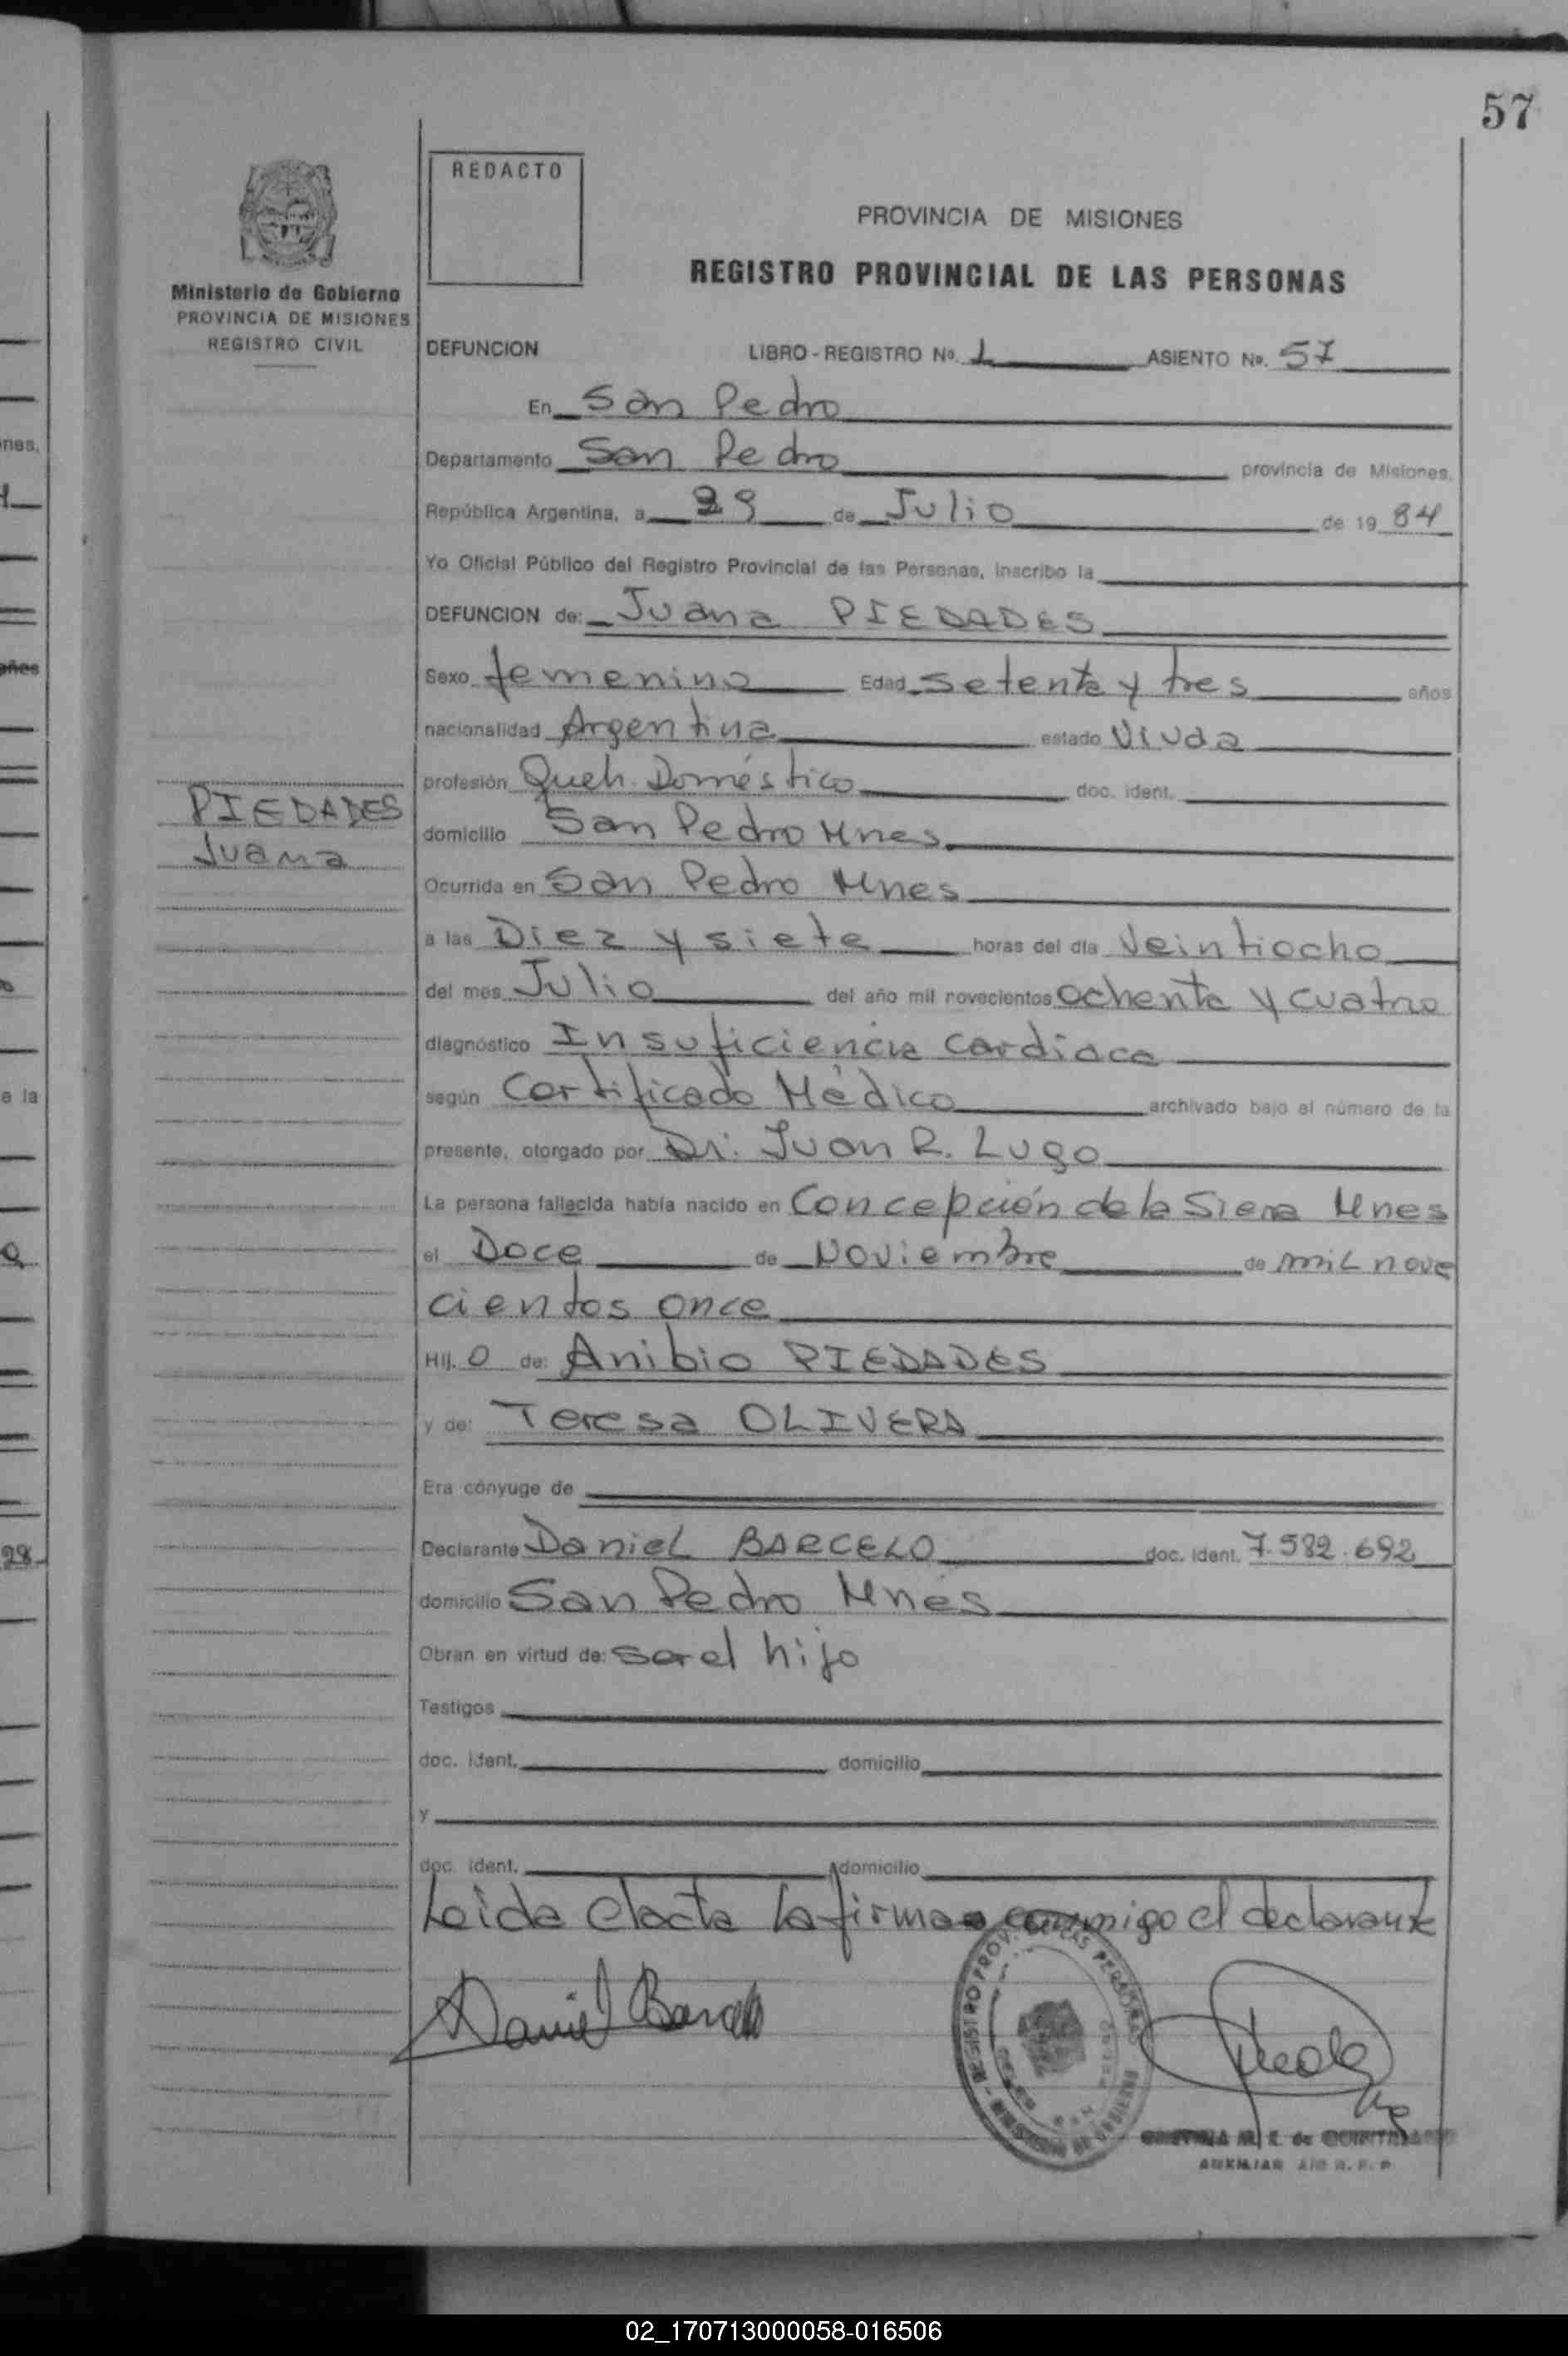 57
REDACTO
PROVINCIA DE MISIONES
REGISTRO PROVINCIAL DE LAS PERSONAS
Ministerio de Gobierno
PROVINCIA DE MISIONES
REGISTRO CIVIL
DEFUNCION LIBRO - REGISTRO Nº. 1 ASIENTO Nº. 57
En San Pedro
Departamento San Pedro provincia de Misiones.
República Argentina, a 29 de Julio de 19 84
Yo Oficial Público del Registro Provincial de las Personas, inscribo la
DEFUNCION de: Juana PIEDADES
Sexo femenino Edad setenta y tres años
nacionalidad Argentina estado Viuda
profesión Queh. Doméstico doc. ident.
PIEDADES
Juana
domicilio San Pedro Mnes
Ocurrida en San Pedro Mnes
a las Diez y siete horas del día Veintiocho
del mes Julio del año mil novecientos ochenta y cuatro
diagnóstico Insuficiencia Cardiaca
según Certificado Médico archivado bajo el número de la
presente, otorgado por Dr. Juan R. Lugo
La persona fallecida había nacido en Concepción de la Siera Mnes
el Doce de Noviembre de mil nove
cientos once
Hij. o de: Anibio PIEDADES
y de: Teresa OLIVERA
Era cónyuge de
Declarante Daniel BARCELO doc. ident. 7.582.692
domicilio San Pedro Mnes
Obran en virtud de: ser el hijo
Testigos
doc. ident. domicilio
y
doc. ident. domicilio
Leida el acta la firma conmigo el declarante
Daniel Barcelo
AUXILIAR
nes.
años
e la
28
02_170713000058-016506